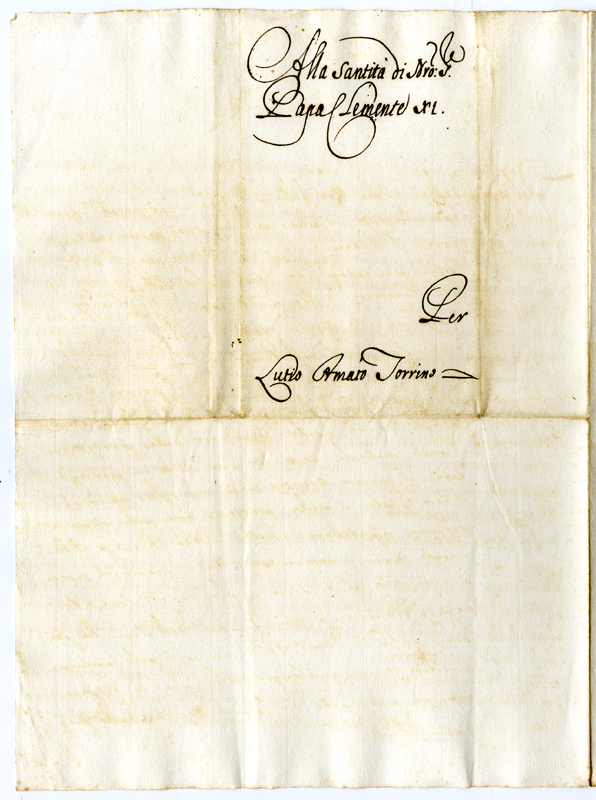 Alla Santità di Nro: S.re
Papa Clemente XI.
Per
Lutio Amato Torrino